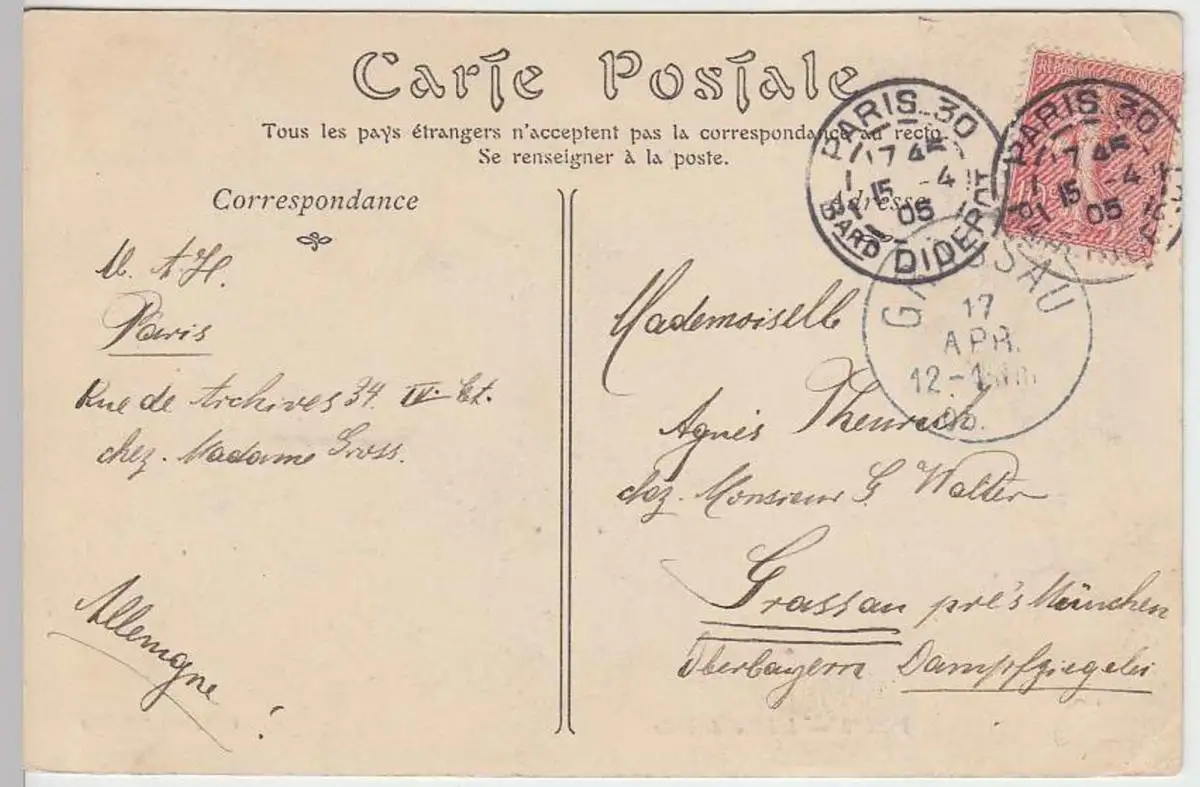 Carte Postale
Tous les pays étrangers n'acceptent pas la correspondance au recto
Se renseigner à la poste.
Correspondance
Adresse
PARIS 30
17 45
15 -4
05
BARD DIDEROT
PARIS 30
17 45
15 -4
05
GRASSAU
17
APR.
12-1
05.
A H.
Paris
Rue de Archives 34. IV. Et.
chez. Madame Gross.
Allemagne
Mademoiselle
Agnès
chez. Monsieur G Walter
Grassau près München
Oberbayern Dampfziegelei